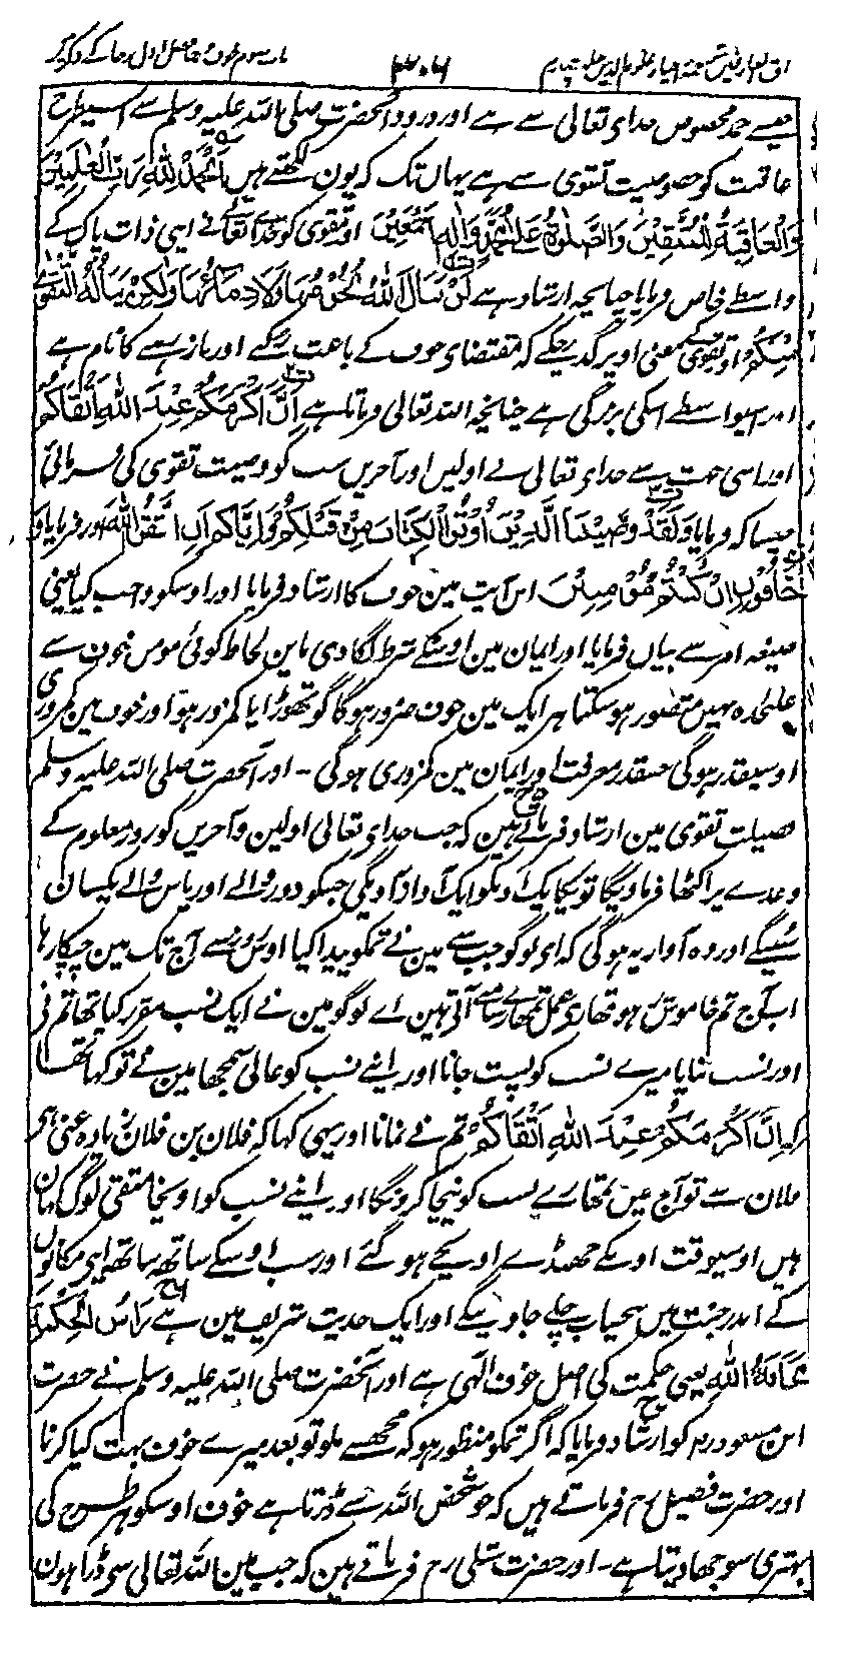 مذاق العارفین ترجمہ احیاء علوم الدین جلد چہارم ۳۰۶ باب سوم خوف فصل اول رجا کے ذکر میں
جیسے حمد مخصوص خدای تعالی سے ہے اور درود آنحضرت صلی اللہ علیہ وسلم سے اسیطرح
عاقبت کو خصوصیت تقوی سے ہے یہاں تک کہ یون کہتے ہیں اَلْحَمْدُ لِلّٰهِ رَبِّ الْعٰلَمِيْنَ
وَالْعَاقِبَةُ لِلْمُتَّقِيْنَ وَالصَّلٰوةُ عَلٰى مُحَمَّدٍ وَّاٰلِهٖ اَجْمَعِيْنَ اور تقوی کو خدای تعالی نے اپنی ذات پاک کے
واسطے خاص فرمایا چنانچہ ارشاد ہے لَنْ يَّنَالَ اللّٰهَ لُحُوْمُهَا وَلَا دِمَآئُهَا وَلٰكِنْ يَّنَالُهُ التَّقْوٰى
مِنْكُمْ اور تقوی کے معنی اوپر گذر چکے کہ مقتضای خوف کے باعث رکنے اور باز رہنے کا نام ہے
اور اسیواسطے اسکی بزرگی ہے چنانچہ اللہ تعالی فرماتا ہے اِنَّ اَكْرَمَكُمْ عِنْدَ اللّٰهِ اَتْقَاكُمْ
اور اسی جہت سے خدای تعالی نے اولین اور آخرین سب کو وصیت تقوی کی فرمائی
جیسا کہ فرمایا وَلَقَدْ وَصَّيْنَا الَّذِيْنَ اُوْتُوا الْكِتَابَ مِنْ قَبْلِكُمْ وَاِيَّاكُمْ اَنِ اتَّقُوا اللّٰهَ اور فرمایا وَ
خَافُوْنِ اِنْ كُنْتُمْ مُّؤْمِنِيْنَ اس آیت مین خوف کا ارشاد فرمایا اور اوسکو واجب کیا یعنی
صیغہ امر سے بیان فرمایا اور ایمان مین اوسکے شرط لگا دی باین لحاظ کوئی مومن خوف سے
علیحدہ نہیں متصور ہو سکتا ہر ایک مین خوف ضرور ہوگا گو تھوڑا یا کمزور ہو اور خوف مین کمزوری
اوسیقدر ہوگی جسقدر معرفت اور ایمان مین کمزوری ہوگی - اور آنحضرت صلی اللہ علیہ وسلم
فضیلت تقوی مین ارشاد فرماتے ہین کہ جب خدای تعالی اولین و آخرین کو روز معلوم کے
وعدے پر اکٹھا فرماویگا تو یکایک اونکو ایک آواز آویگی جسکو دور والے اور پاس والے یکسان
سنینگے اور وہ آواز یہ ہوگی کہ ای لوگو جب سے مین نے تمکو پیدا کیا اوس روز سے آج تک مین چپکا رہا
اب آج تم خاموش ہو تمھارے عمل تمھارے سامنے آتے ہین اے لوگو مین نے ایک نسب مقرر کیا تھا تم نے
اور نسب بنایا میرے نسب کو پست جانا اور اپنے نسب کو عالی سمجھا مین نے تو کہا تھا
کہ اِنَّ اَكْرَمَكُمْ عِنْدَ اللّٰهِ اَتْقَاكُمْ تم نے نمانا اور یہی کہا کہ فلان بن فلان زیادہ غنی ہے
فلان سے تو آج میں تمھارے نسب کو نیچا کرونگا اور اپنے نسب کو اونچا متقی لوگ کہان
ہیں اوسیوقت اونکے جھنڈے اونچے ہو گئے اور سب اوسکے ساتھ ساتھ اپنے مکانوں
کے اندر جنت میں بیحساب چلے جاوینگے اور ایک حدیث شریف مین ہے رَاْسُ الْحِكْمَةِ
مَخَافَةُ اللّٰهِ یعنی حکمت کی اصل خوف الہی ہے اور آنحضرت صلی اللہ علیہ وسلم نے حضرت
ابن مسعود رم کو ارشاد فرمایا کہ اگر تمکو منظور ہو کہ مجھسے ملو تو بعد میرے خوف بہت کیا کرنا
اور حضرت فضیل رح فرماتے ہیں کہ جو شخص اللہ سے ڈرتا ہے خوف اوسکو ہر طرح کی
بہتری سوجھا دیتا ہے - اور حضرت شبلی رح فرماتے ہین کہ جب مین اللہ تعالی سے ڈرا ہون